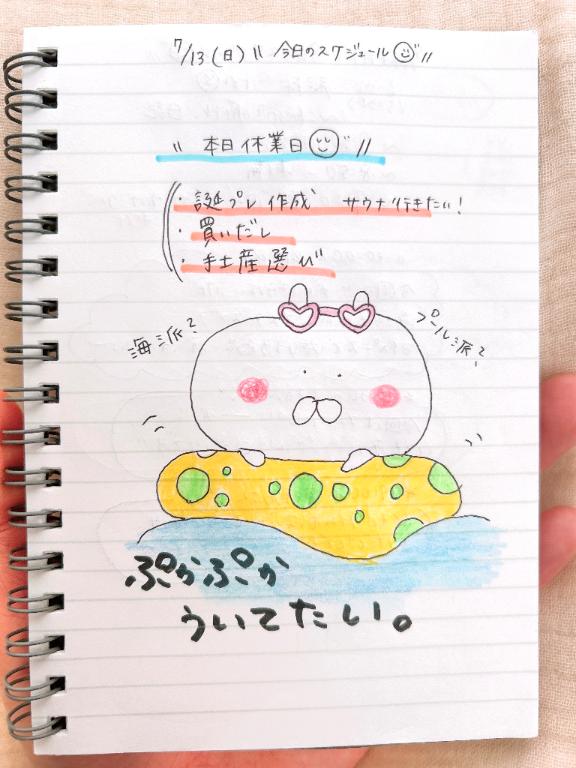 7/13(日) " 今日のスケジュール "
" 本日休業日 "
・誕プレ作成 サウナ行きたい!
・買いだし
・手土産選び
海派?
プール派?
ぷかぷか
ういてたい。